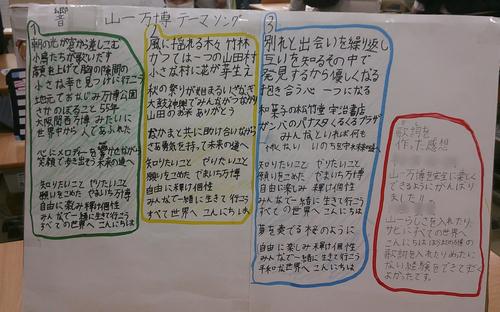 響 山一万博 テーマソング
1
朝の光が窓から差しこむ
小鳥たちが歌いだす
顔を上げて胸の隙間の
小さな幸せ見つけに行こう
地元でおなじみ万博公園
さかのぼること55年
大阪関西万博みたいに
世界中から人であふれた
心にメロディーを響かせながら
笑顔で歩き出そう未来の道へ
知りたいこと やりたいこと
願いをこめた やまいち万博
自由に楽しみ輝け個性
みんなで一緒に生きて行こう
すべての世界へ こんにちは
2
風に揺れる木々 竹林
かつては一つの山田村
小さな村に花が芽生え
秋の祭りが始まるいざなぎ
太鼓神輿でみんなつながり
山田のお米 ありがとう
なかまと共に助け合いながら
さあ勇気を持って未来の道へ
知りたいこと やりたいこと
願いをこめた やまいち万博
自由に輝け個性
みんなで一緒に生きて行こう
すべて世界へ こんにちは
3
別れと出会いを繰り返し
互いを知るその中で
発見するから優しくなる
抱き合う心 一つになる
和菓子の松竹堂 宇治書店
ガンバのパナスタくるくるプラザ
みんないれば何も
いのちを守る
知りたいこと やりたいこと
願いをこめた やまいち万博
自由に楽しみ 輝け個性
みんなで一緒に生きて行こう
すべて世界へ こんにちは
草を奏でる そのように
自由に楽しみ輝け個性
みんなで一緒に生きて行こう
平和な世界へ こんにちは
歌詞を
作った感想
山一万博を完全に楽しく
できるようにがんばり
ました!!
山一らしさを入れたり
サビにすべての世界へ
こんにちは
歌詞を入れたりめったに
ない経験をできて
よかったです。